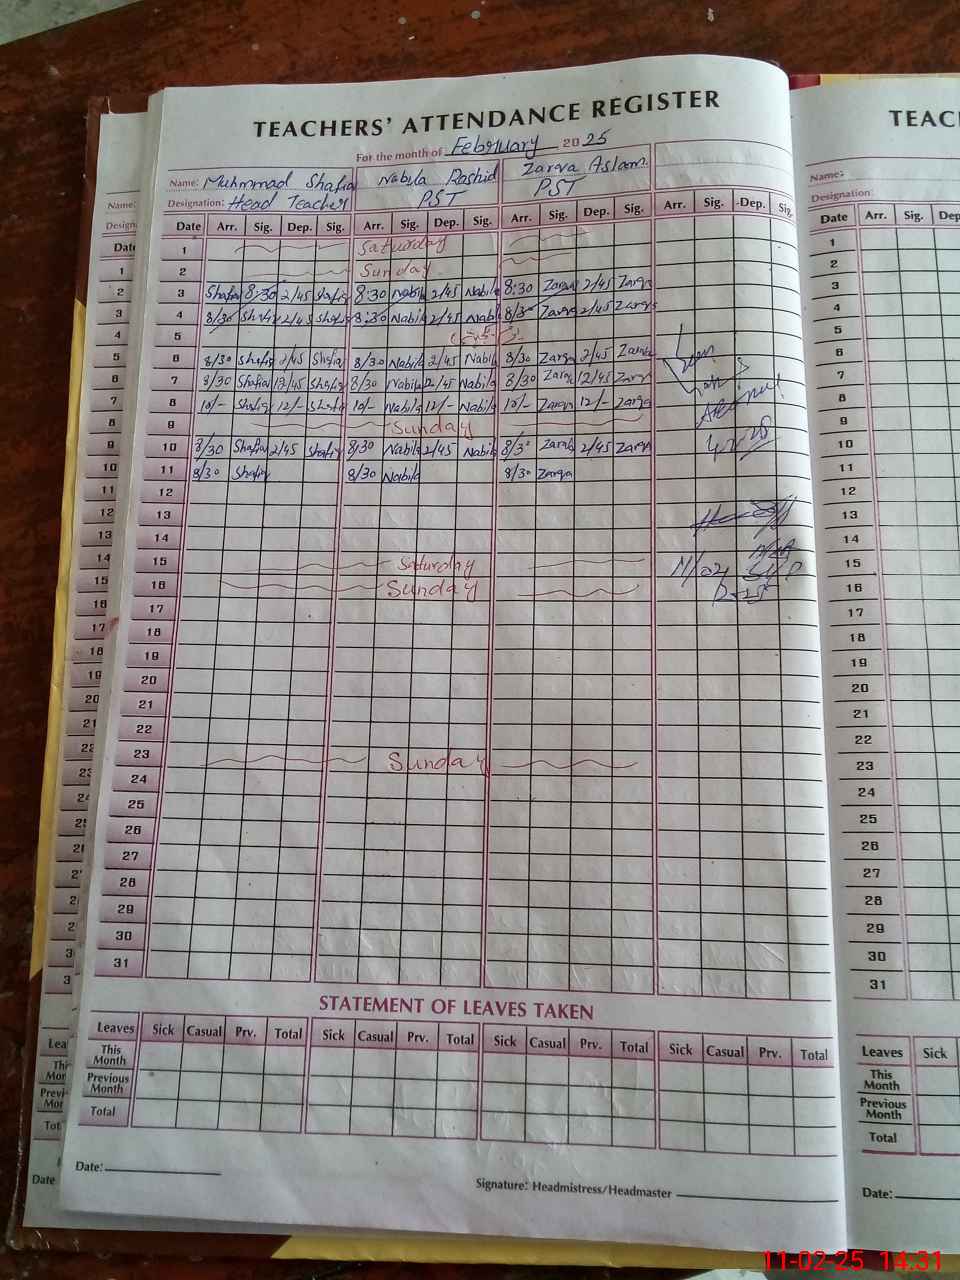 TEACHERS' ATTENDANCE REGISTER
For the month of February 2025
Name: Muhmmad Shafiq Nabila Rashid Zarqa Aslam
Designation: Head Teacher PST PST
Date Arr. Sig. Dep. Sig. Arr. Sig. Dep. Sig. Arr. Sig. Dep. Sig. Arr. Sig. Dep. Sig.
1 Saturday
2 Sunday
3 Shafiq 8:30 2/45 Shafiq 8:30 Nabila 2/45 Nabila 8:30 Zarqa 2/45 Zarqa
4 8/30 Shafiq 2/45 Shafiq 8:30 Nabila 2/45 Nabila 8/30 Zarqa 2/45 Zarqa
5
6 8/30 Shafiq 2/45 Shafiq 8/30 Nabila 2/45 Nabila 8/30 Zarqa 2/45 Zarqa
7 8/30 Shafiq 12/45 Shafiq 8/30 Nabila 12/45 Nabila 8/30 Zarqa 12/45 Zarqa
8 10/- Shafiq 12/- Shafiq 10/- Nabila 12/- Nabila 10/- Zarqa 12/- Zarqa
9 Sunday
10 8/30 Shafiq 2/45 Shafiq 8/30 Nabila 2/45 Nabila 8/30 Zarqa 2/45 Zarqa
11 8/30 Shafiq 8/30 Nabila 8/30 Zarqa
12
13
14
15 Saturday
16 Sunday
17
18
19
20
21
22
23 Sunday
24
25
26
27
28
29
30
31
STATEMENT OF LEAVES TAKEN
Leaves Sick Casual Prv. Total Sick Casual Prv. Total Sick Casual Prv. Total Sick Casual Prv. Total
This Month
Previous Month
Total
Date:
Signature: Headmistress/Headmaster
TEAC
Name:
Designation:
Date Arr. Sig. Dep
1
2
3
4
5
6
7
8
9
10
11
12
13
14
15
16
17
18
19
20
21
22
23
24
25
26
27
28
29
30
31
Leaves Sick
This Month
Previous Month
Total
Date:
11-02-25 14:31